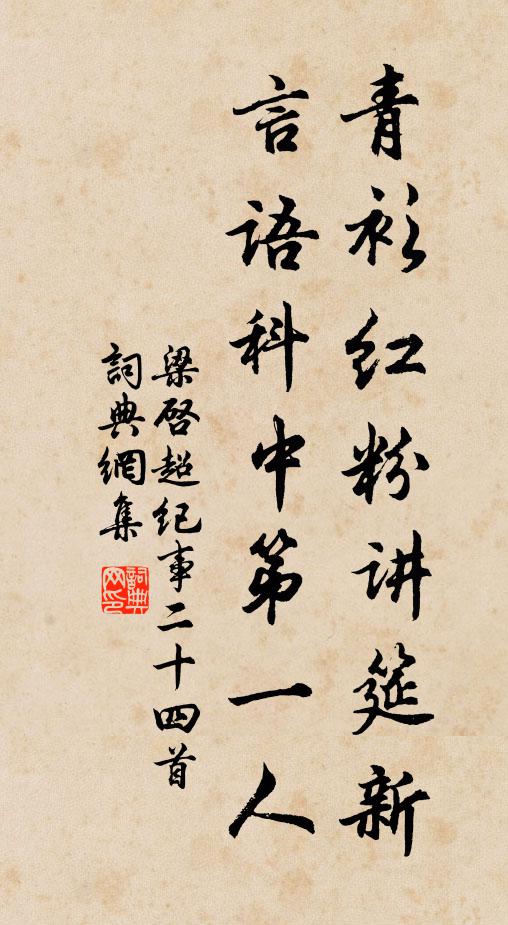 青衫红粉讲筵新
言语科中第一人
梁启超纪事二十四首
詞典網集
詞典网印